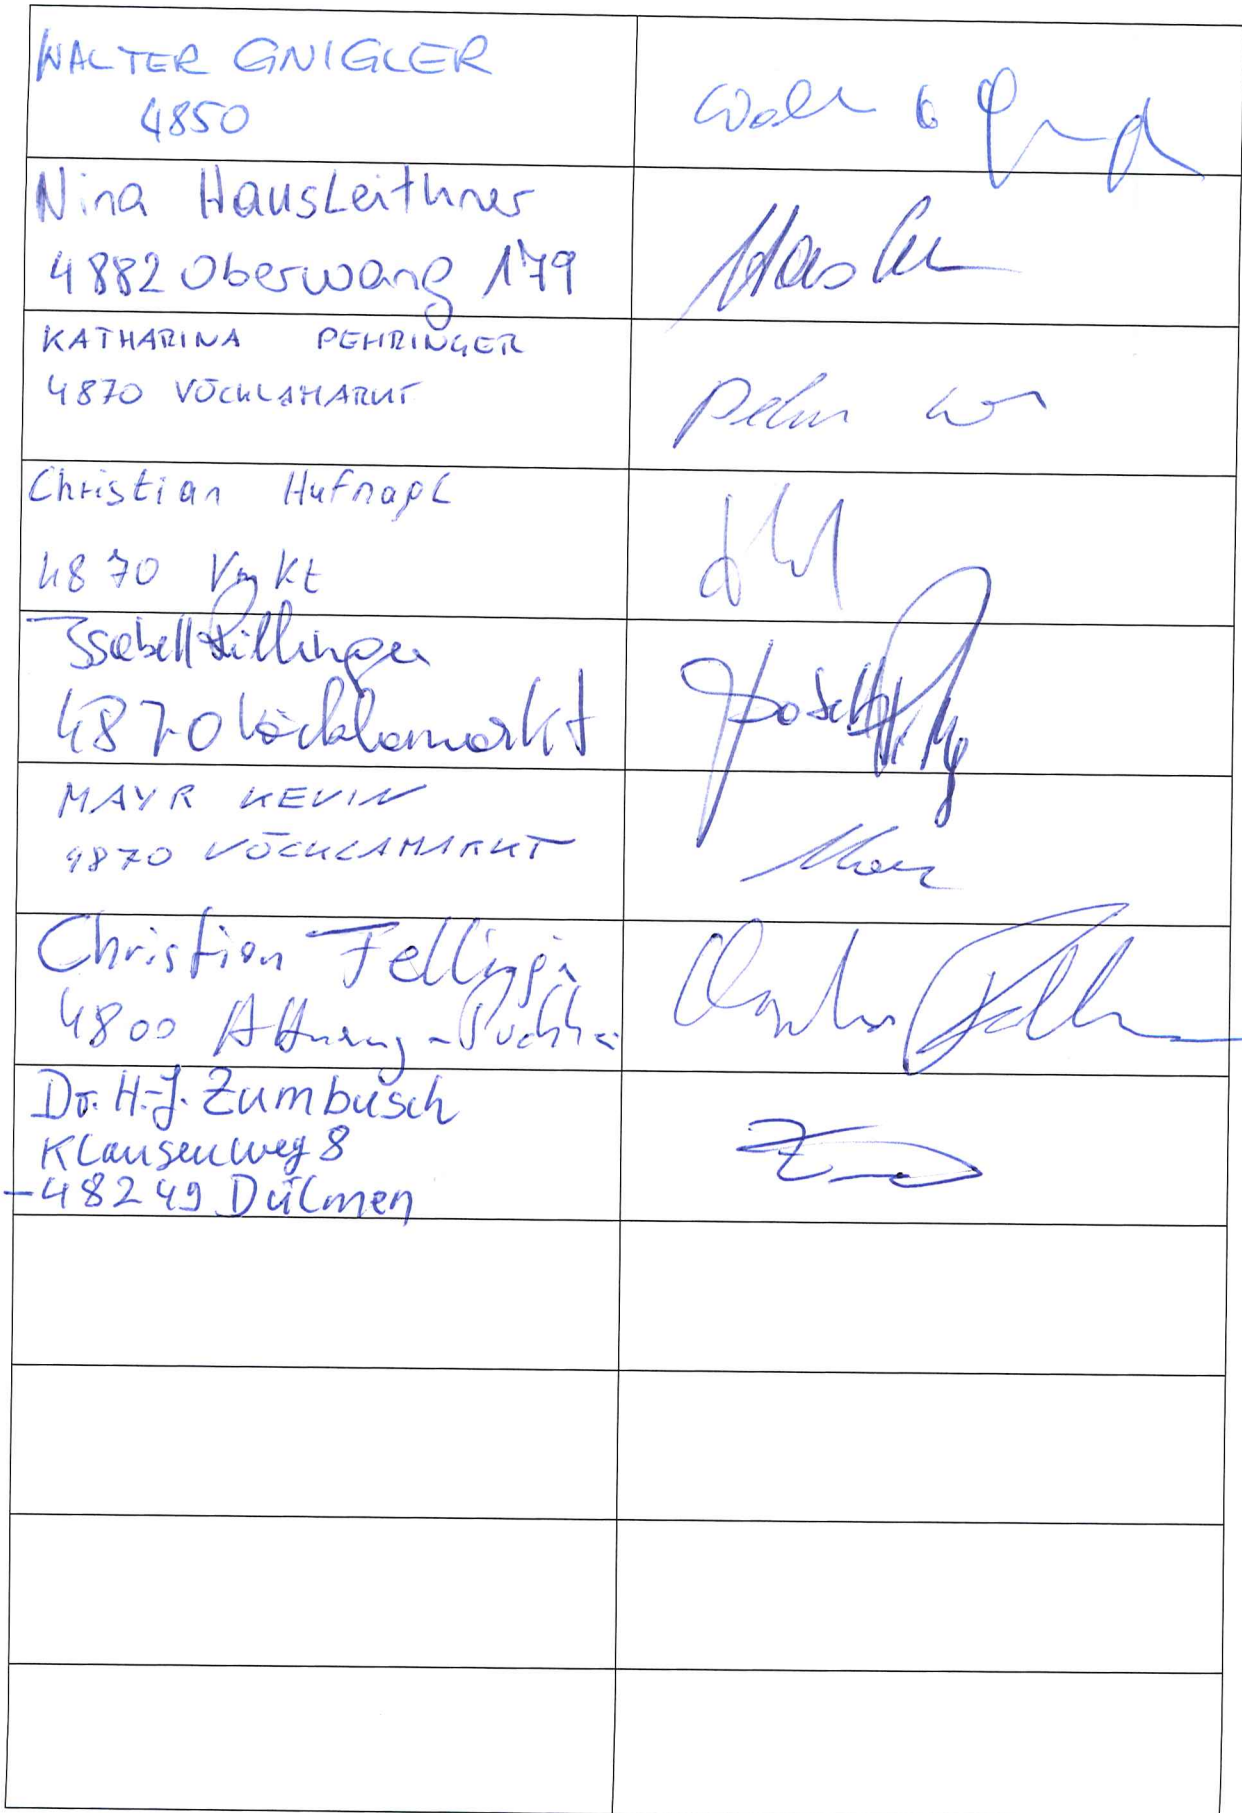 WALTER GNIGLER
4850
Nina Hausleithner
4882 Oberwang 179
KATHARINA PEHRINGER
4870 VÖCKLAMARKT
Christian Hufnagl
4870 Vmkt
Isabell Pillinger
4870 Vöcklamarkt
MAYR KEVIN
4870 VÖCKLAMARKT
Christian Fellinger
4800 Attnang-Puchheim
Dr. H.-J. Zumbusch
Klausenweg 8
-48249 Dülmen